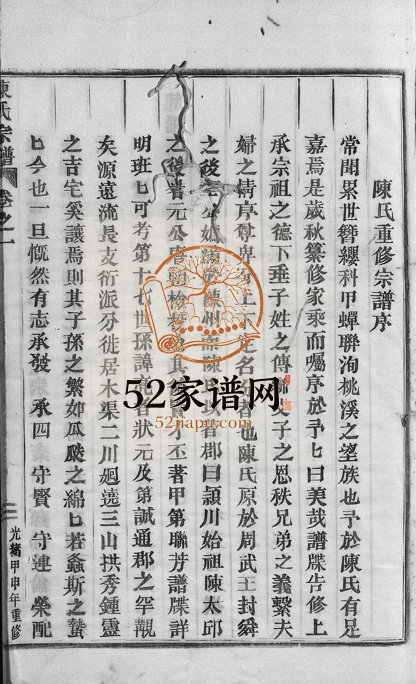 陳氏重修宗譜序
常聞累世簪纓科甲蟬聯洵桃溪之望族也予於陳氏有足
嘉焉是歲秋纂修家乘而囑序於予匕曰美哉譜牒告修上
承宗祖之德下垂子姓之傳聯父子之恩秩兄弟之義繫夫
婦之情序尊卑上下定名分者也陳氏原於周武王封舜
之後陳州陳氏以郡曰潁川始祖陳太邱
之後晉元公其才丕著甲第聯芳譜牒詳
明班匕可考第十七世孫諱者狀元及第誠通郡之罕覯
矣源遠流長支衍派分徙居木渠二川廻遶三山拱秀鍾靈
之吉宅奚讓焉則其子孫之繁如瓜瓞之綿匕若螽斯之蟄
匕今也一旦慨然有志承發 承四 守賢 守連 榮配
陳氏宗譜 卷之一
光緒甲申年重修
52家谱网
52jiapu.com